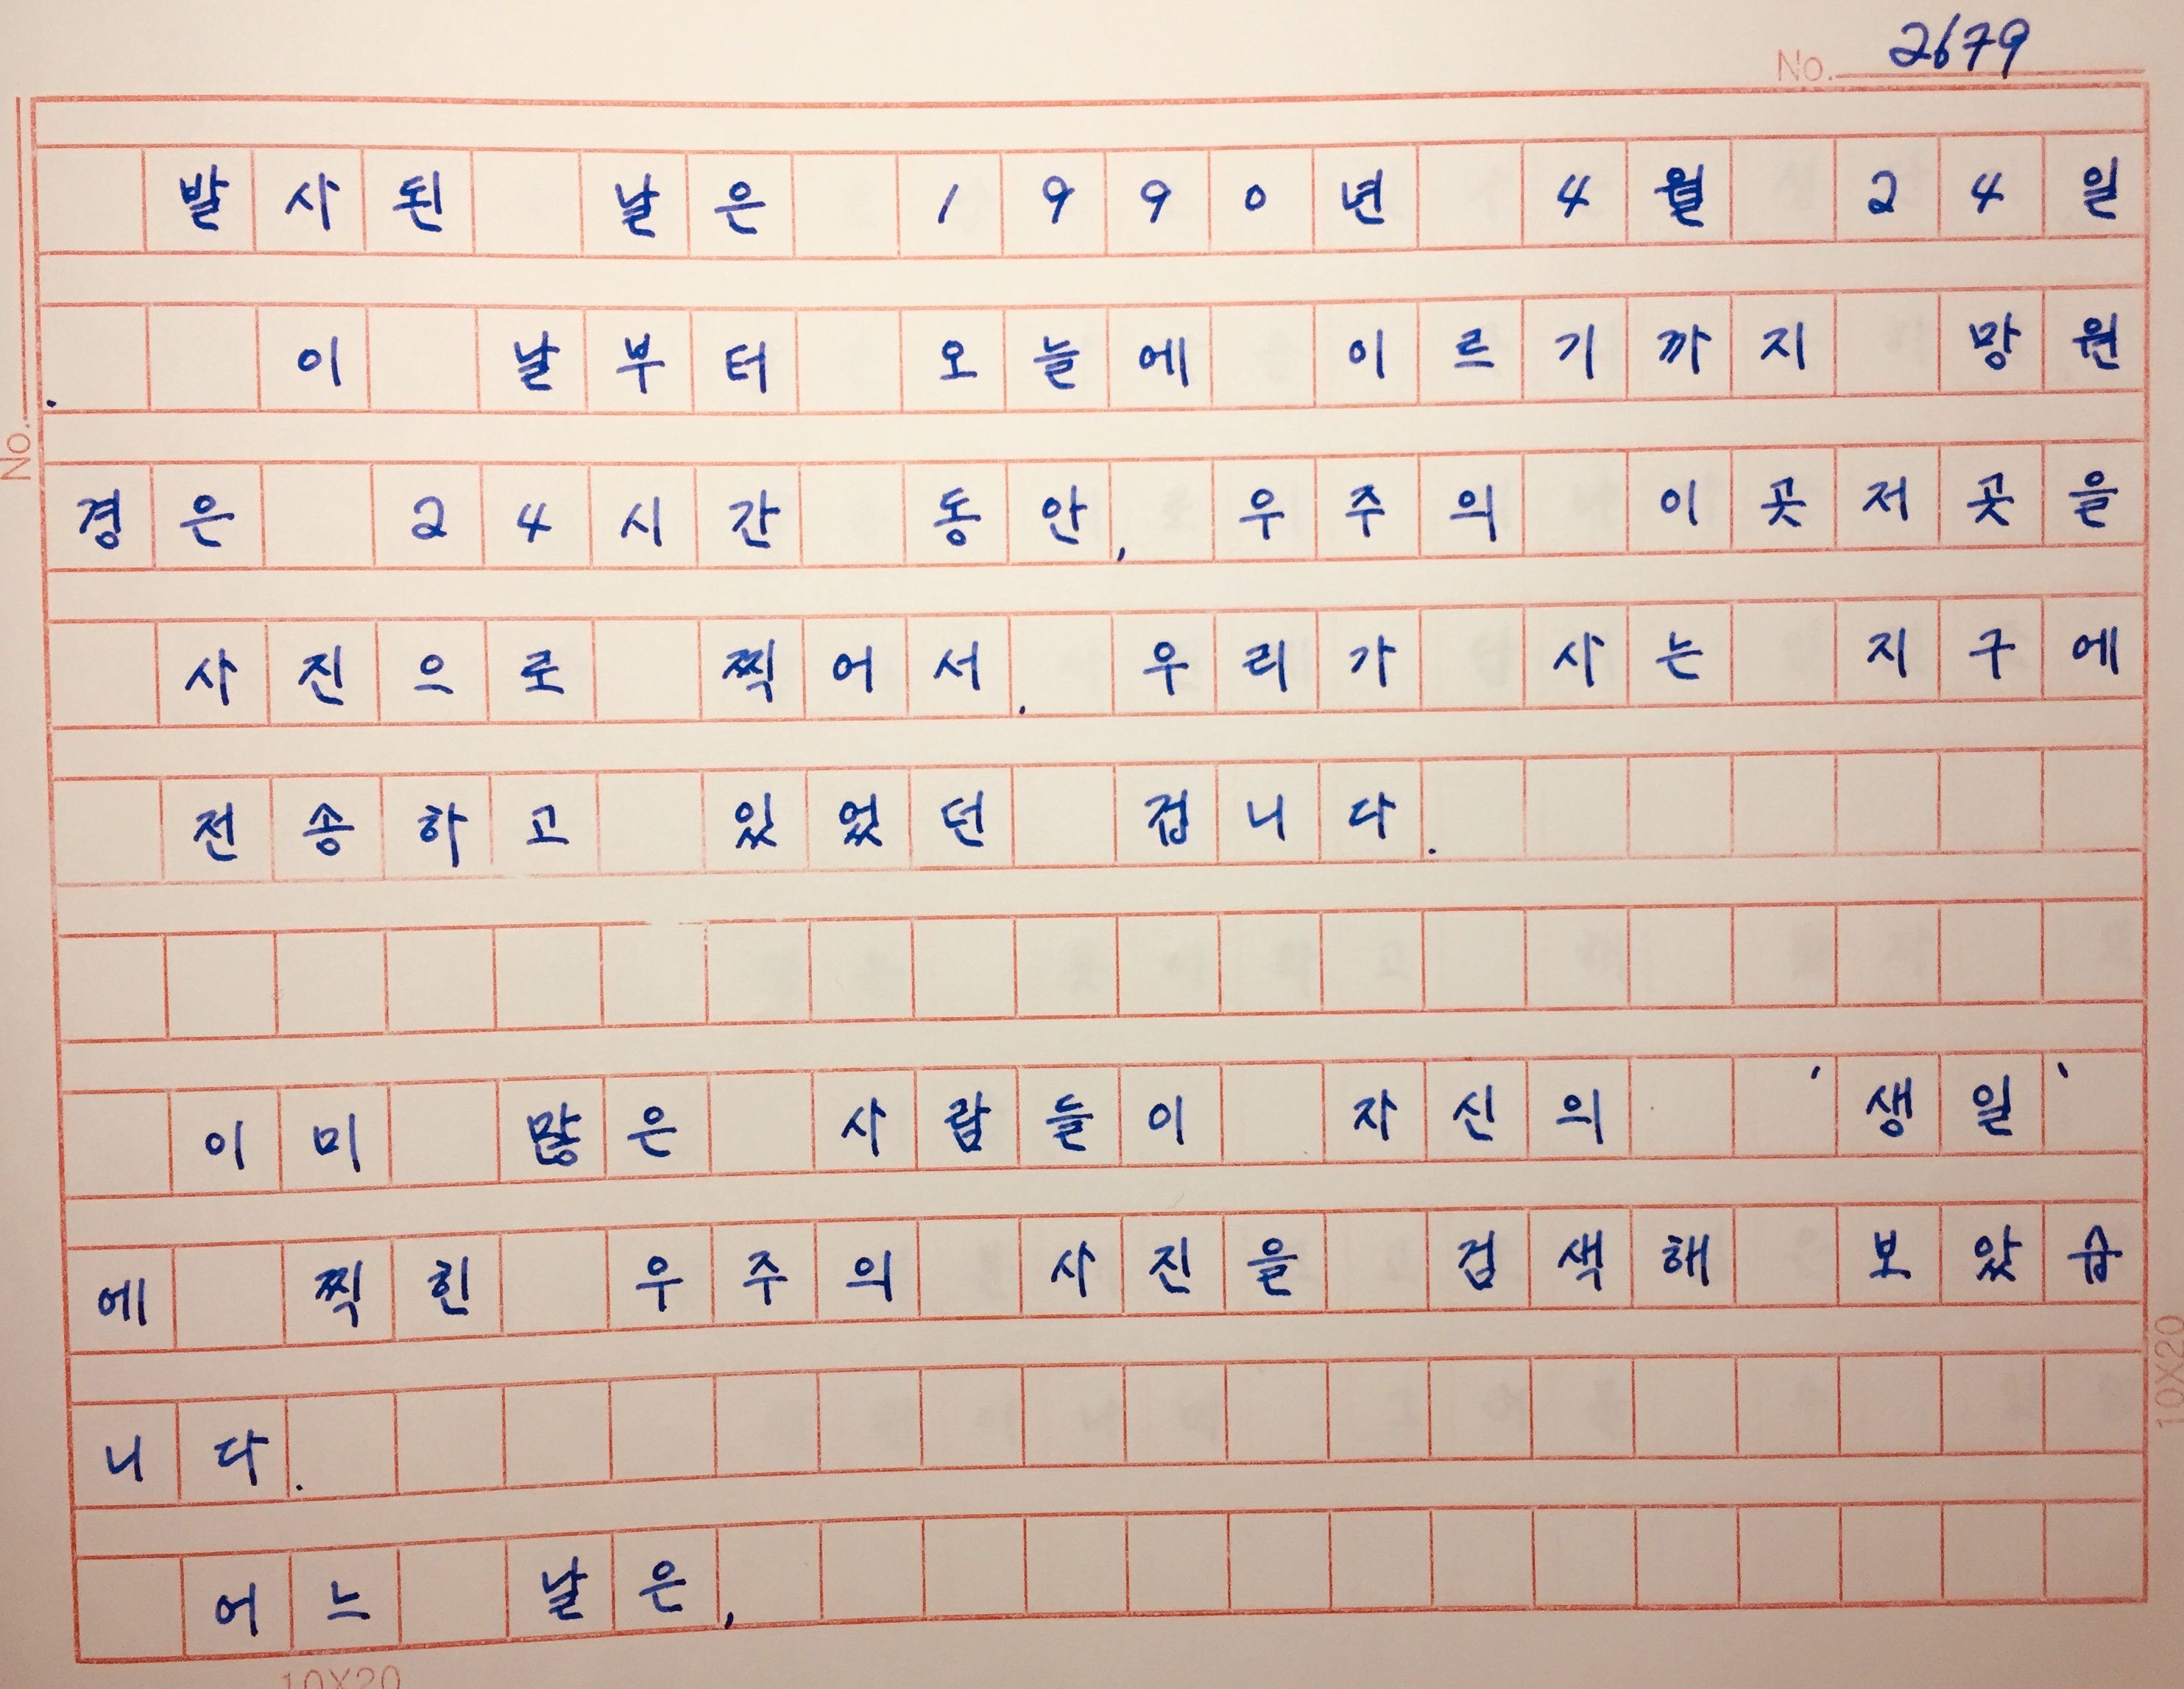 No. 2679
발사된 날은 1990년 4월 24일
. 이 날부터 오늘에 이르기까지 망원
No.
경은 24시간 동안, 우주의 이곳저곳을
사진으로 찍어서. 우리가 사는 지구에
전송하고 있었던 겁니다.
이미 많은 사람들이 자신의 '생일'
에 찍힌 우주의 사진을 검색해 보았습
니다.
어느 날은,
10X20
10X20